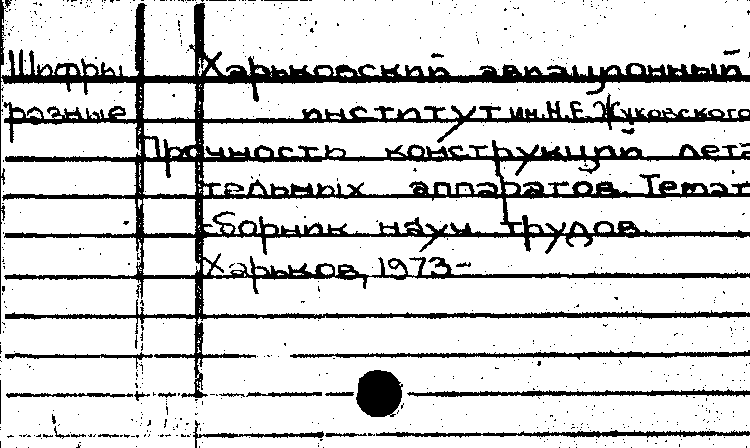 Шифры Харьковский авиационный
разные институт им. Н.Е. Жуковского
Прочность конструкций лета
тельных аппаратов. Темат
сборник науч трудов.
Харьков, 1973-